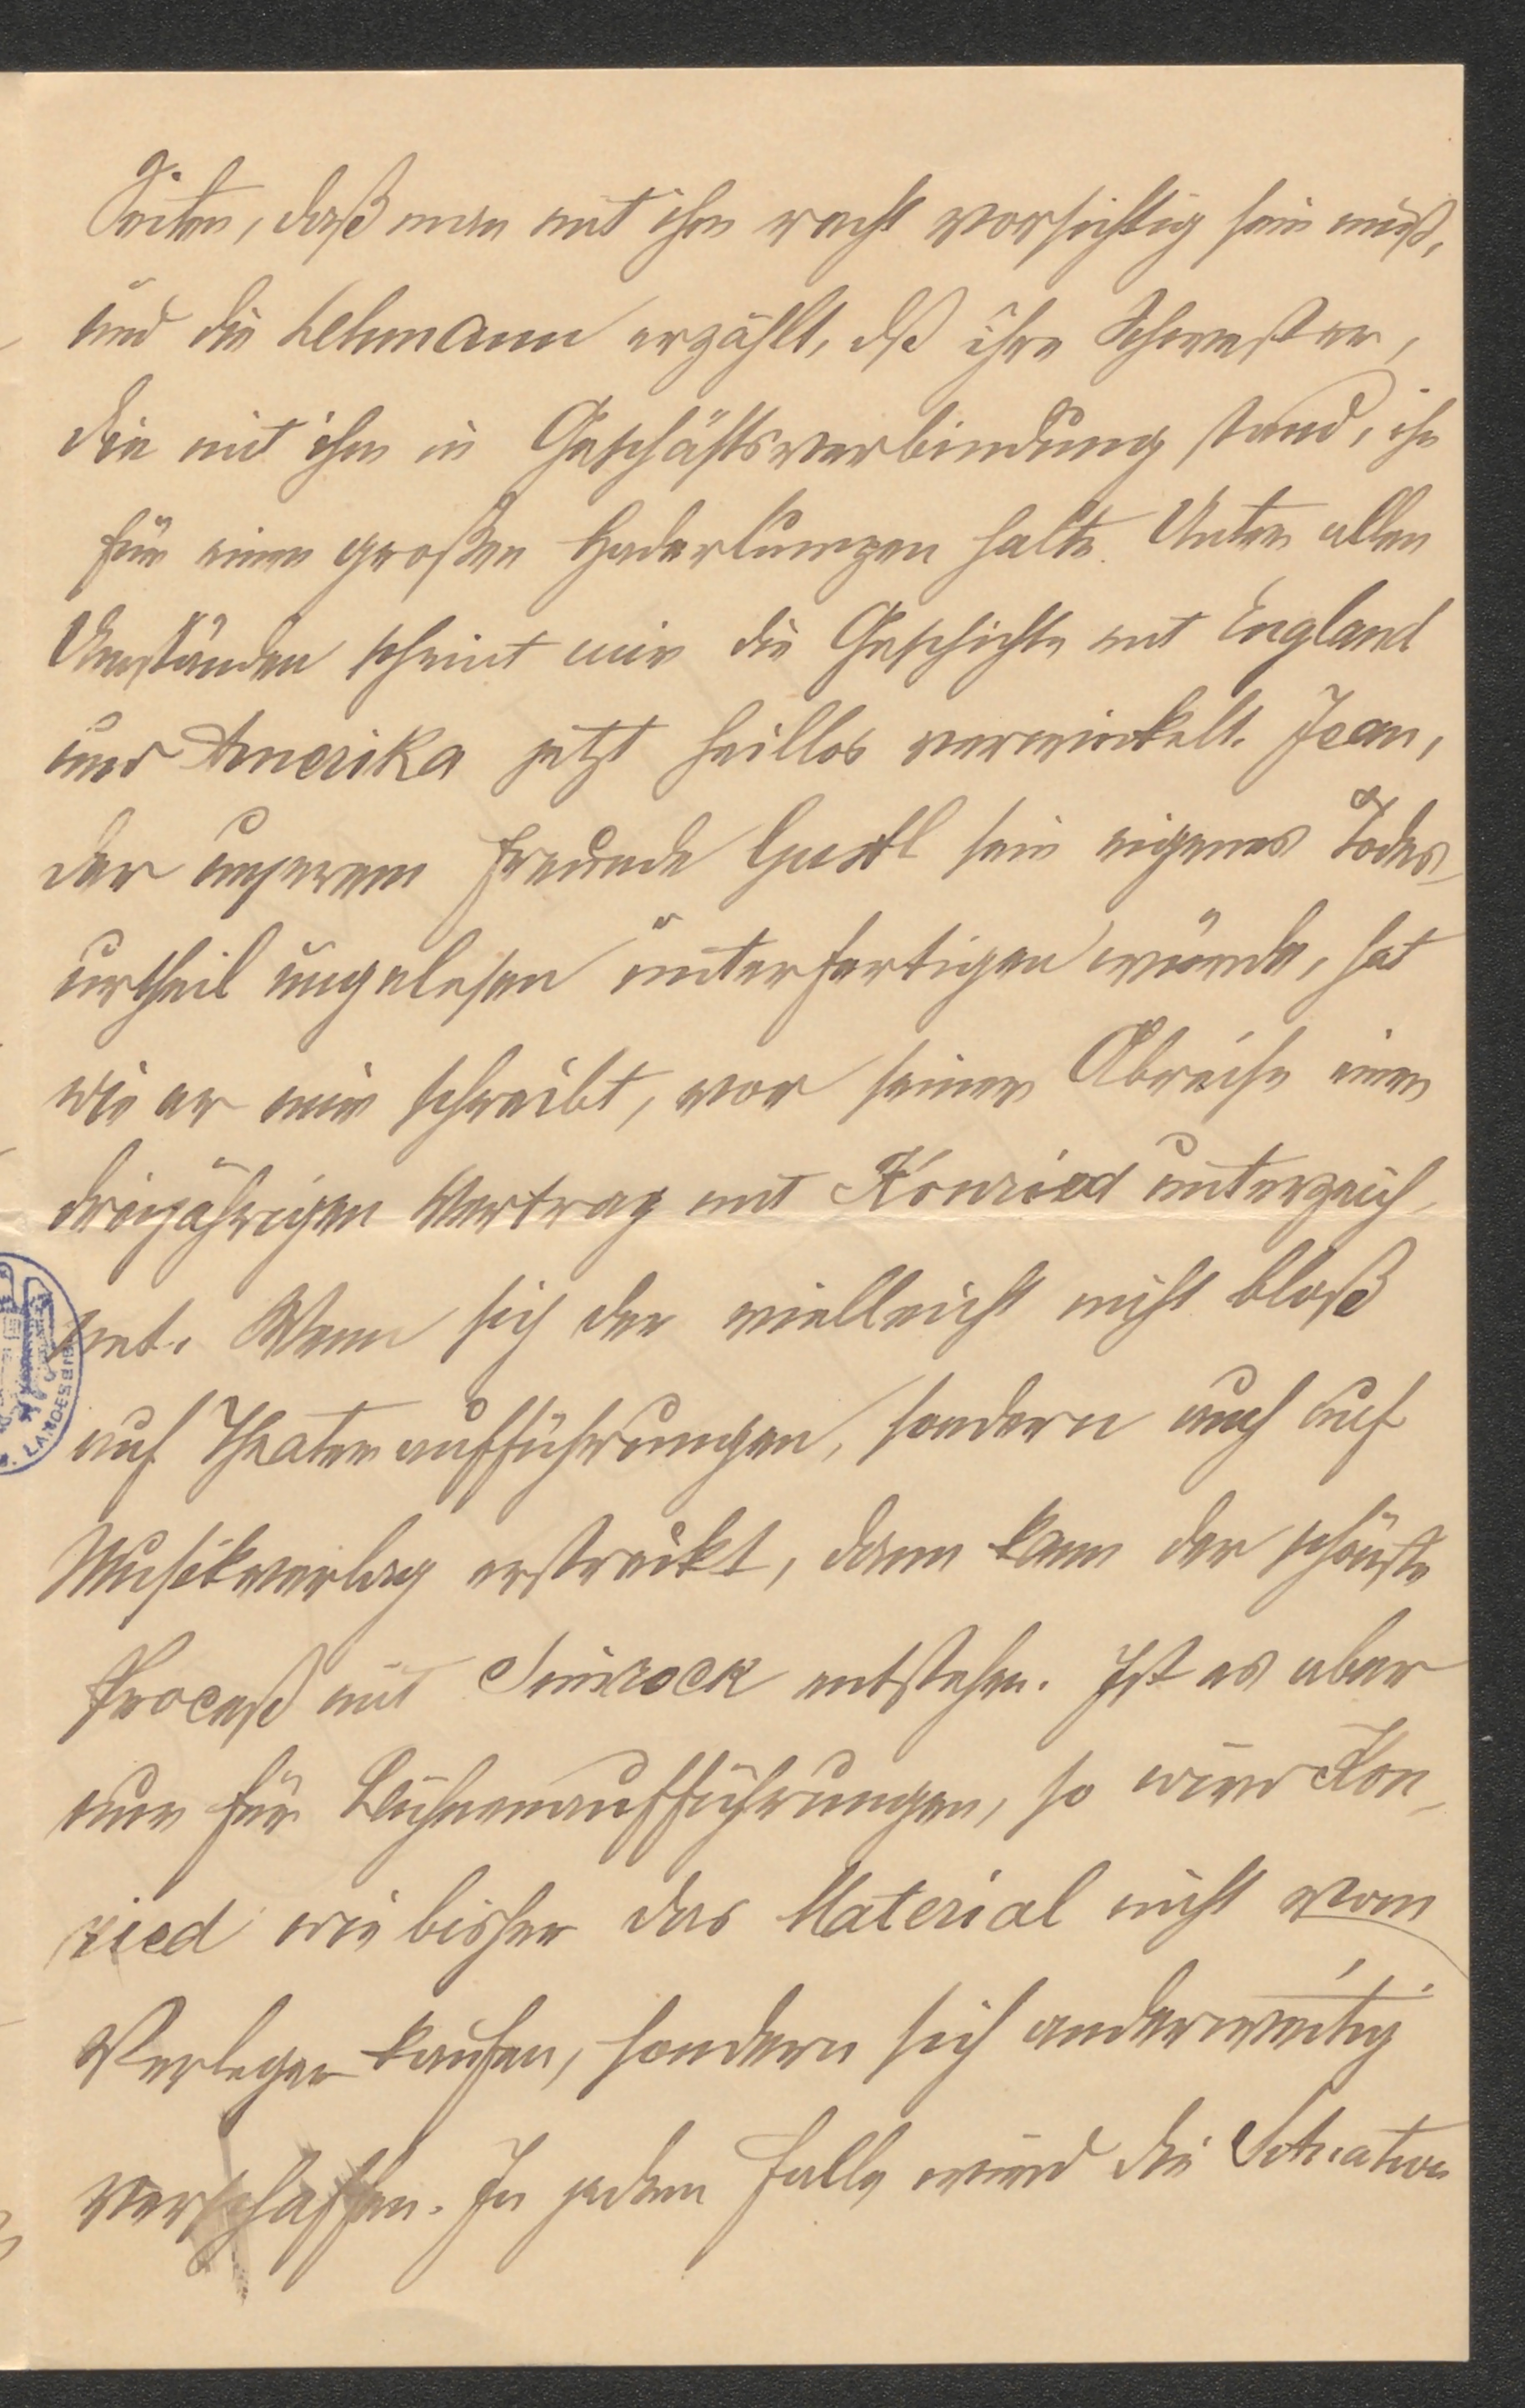 Seiten, daß man mit ihm recht vorsichtig sein muß,
und die Lehmann erzählt, dß ihre Schwester,
die mit ihm in Geschäftsverbindung stand, ihn
für einen großen Haderlumpen halte. Unter allen
Umständen scheint mir die Geschichte mit England
und Amerika jetzt heillos verwickelt. Jean,
der unserem Freunde Gustl sein eigenes Todes-
urtheil ungelesen unterfertigen würde, hat
wie er mir schreibt, vor seiner Abreise einen
dreijährigen Vertrag mit Konried unterzeich-
net. Wenn sich der vielleicht nicht bloß
auf Theateraufführungen, sondern auch auf
Musikverlag erstreckt, dann kann der schönste
Proceß mit Simrock entstehen. Ist es aber
nur für Bühnenaufführungen, so wird Kon-
ried wie bisher das Material nicht vom
Verleger kaufen, sondern sich anderweitig
verschaffen. In jedem Falle wird die Situation
LANDESBIB